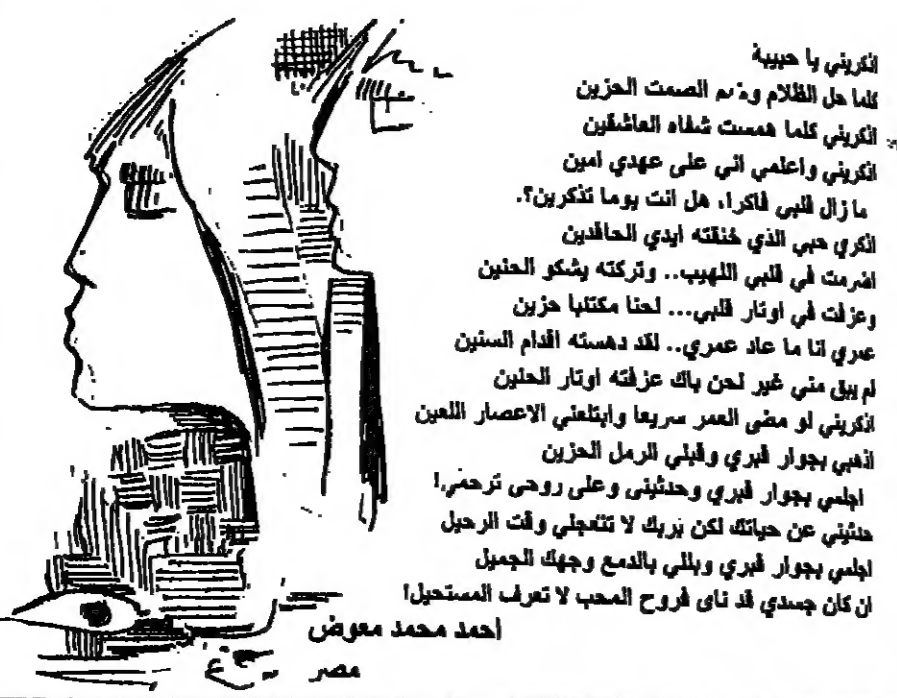 اذكريني يا حبيبة
كلما حل الظلام الصمت الحزين
اذكريني كلما همست شفاه العاشقين
اذكريني واعلمي اني على عهدي امين
ما زال قلبي ذاكرا، هل انت يوما تذكرين؟.
اذكري حبي الذي خنقته ايدي الحاقدين
اضرمت في قلبي اللهيب.. وتركته يشكو الحنين
وعزفت في اوتار قلبي... لحنا مكتئبا حزين
عمري انا ما عاد عمري.. لقد دهسته اقدام السنين
لم يبق مني غير لحن باك عزفته اوتار الحنين
اذكريني لو مضى العمر سريعا وابتلعني الاعصار اللعين
اذهبي بجوار قبري وقبلي الرمل الحزين
اجلسي بجوار قبري وحدثيني وعلى روحي ترحمي!
حدثيني عن حياتك لكن بربك لا تتعجلي وقت الرحيل
اجلسي بجوار قبري وبللي بالدمع وجهك الجميل
ان كان جسدي قد ناى فروح المحب لا تعرف المستحيل!
أحمد محمد معوض
مصر